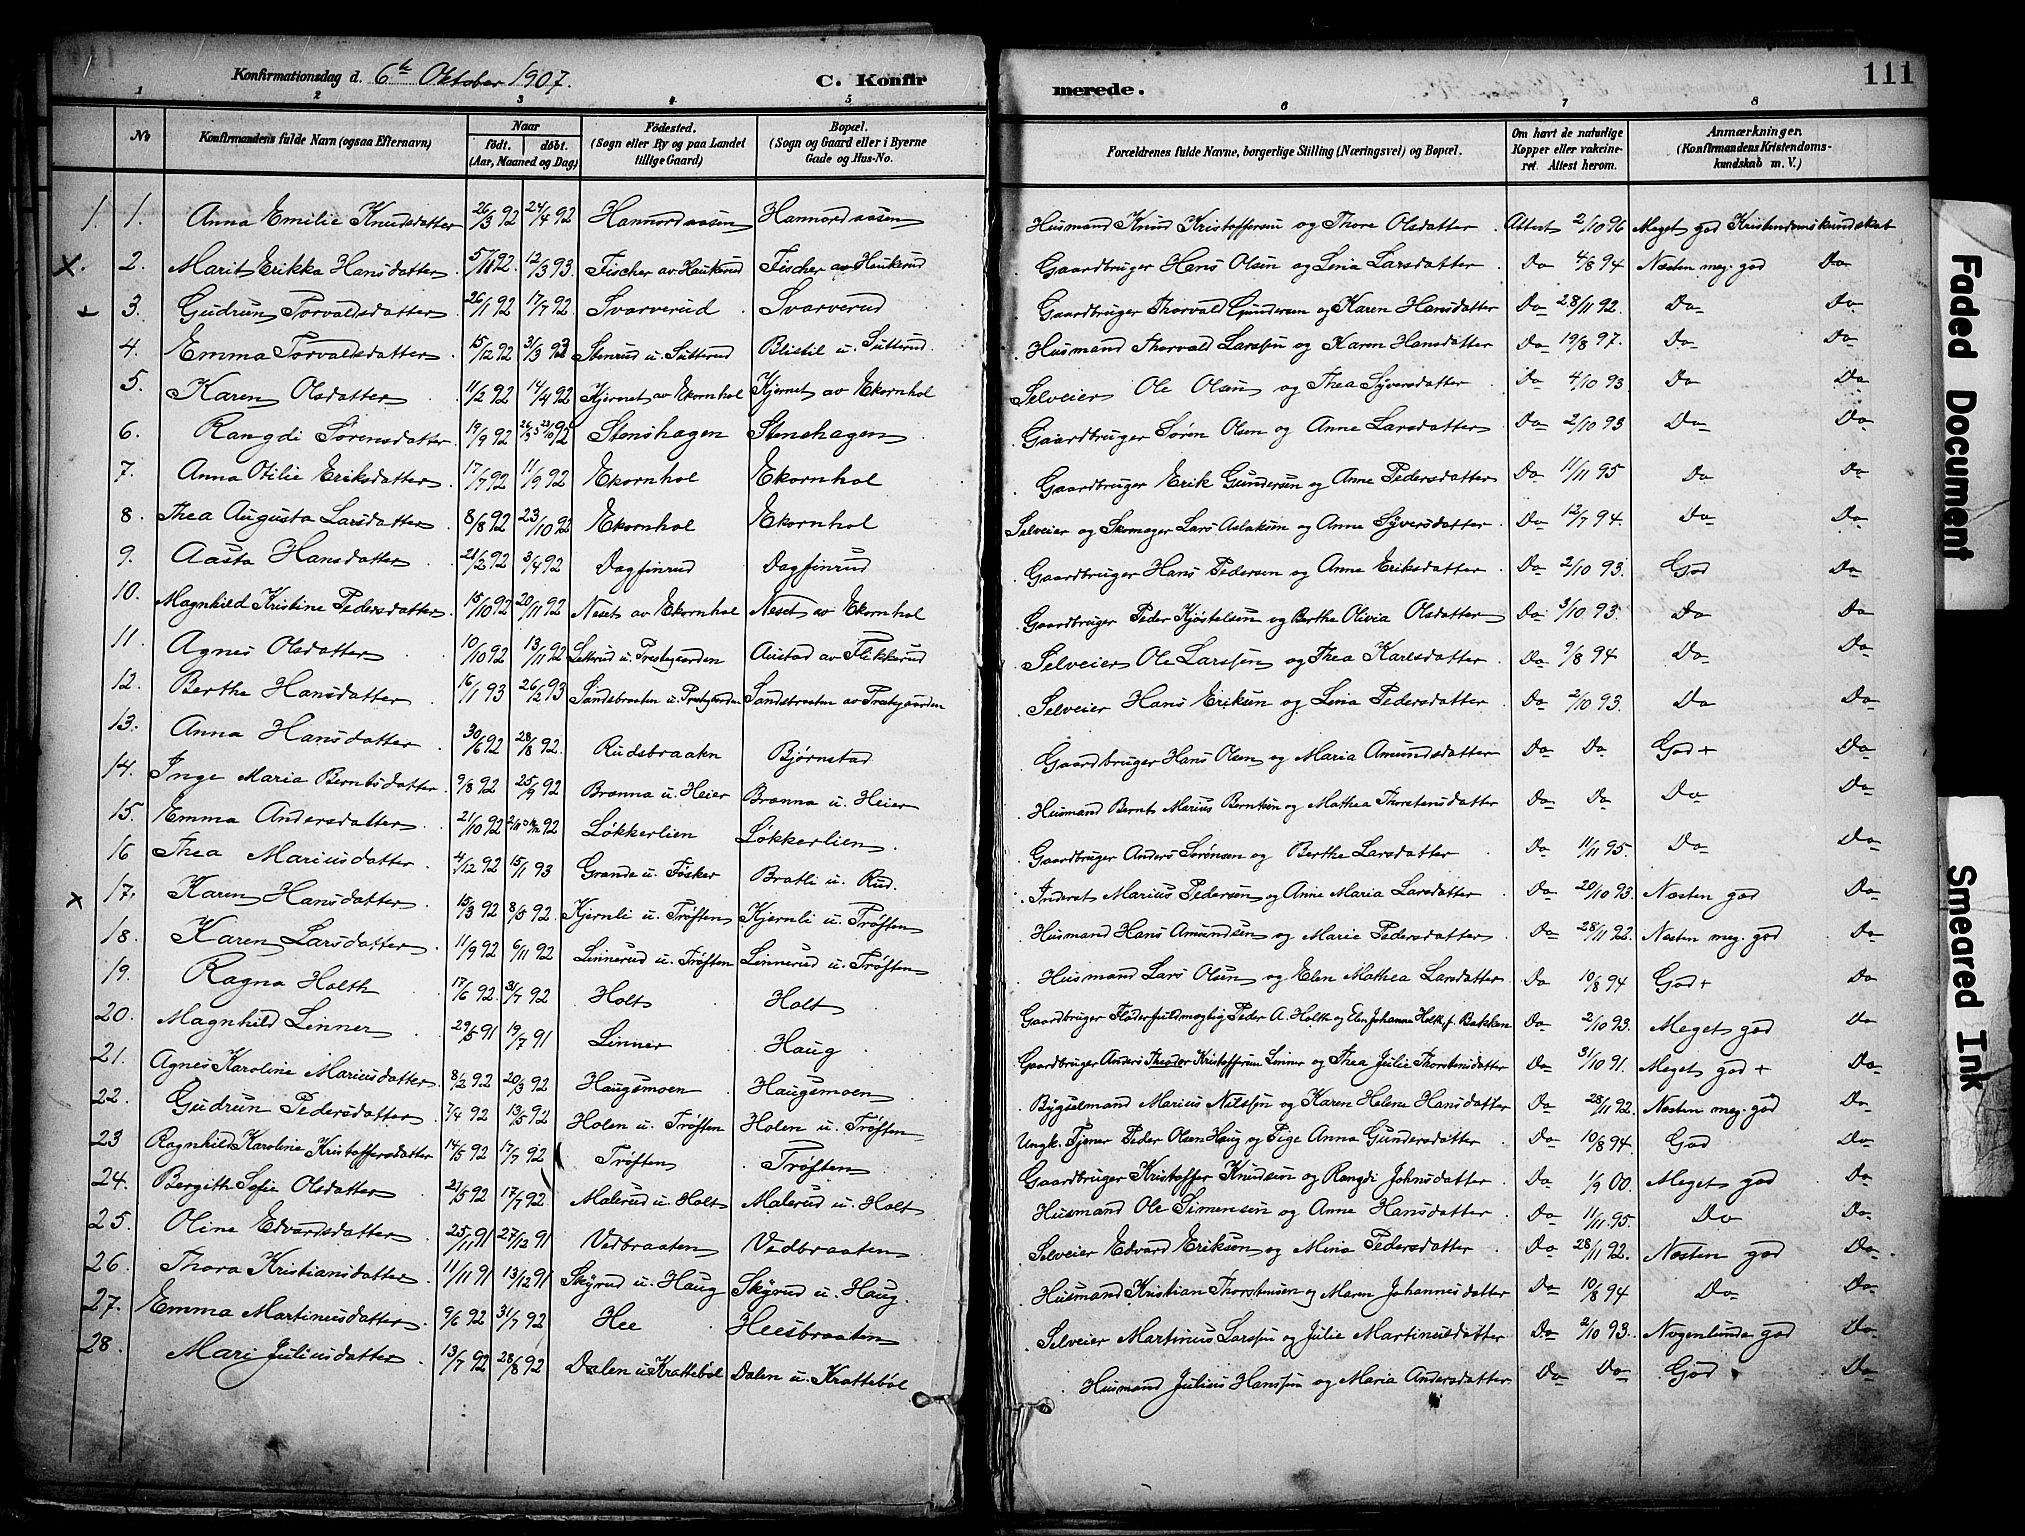 Konfirmationsdag d. 6te Oktober 1907. C. Konfirmerede. 111
1 2 3 4 5 6 7 8
No Konfirmandens fulde Navn (ogsaa Efternavn) Naar födt. döbt. (Aar, Maaned og Dag) Födested. (Sogn eller By og paa Landet tillige Gaard) Bopæl. (Sogn og Gaard eller i Byerne Gade og Hus-No. Forældrenes fulde Navne, borgerlige Stilling (Næringsvei) og Bopæl. Om havt de naturlige Kopper eller vakcineret. Attest herom. Anmærkninger. (Konfirmandens Kristendomskundskab m. V.)
1. 1. Anna Emilie Knudsdatter 26/3 92 24/4 92 Hannordaasen Hannordaasen Husmand Knud Kristoffersen og Thore Olsdatter Attest 2/10 96 Meget god Kristendomskundskab
X. 2. Marit Erikka Hansdatter 5/11 92. 12/3 93. Fischer av Haukerud Fischer av Haukerud Gaardbruger Hans Olsen og Lina Larsdatter Do 4/8 94 Næsten meg. god Do
+ 3. Gudrun Torvaldsdatter 26/1 92 17/7 92 Svarverud Svarverud Gaardbruger Thorvald Gundersen og Karen Hansdatter Do 28/11 92. Do Do
4. Emma Torvaldsdatter 15/12 92 3/3 93 Stenrud u. Sutterud Blistil u. Sutterud. Husmand Thorvald Larssen og Karen Hansdatter Do 19/8 97. Do Do
5. Karen Olsdatter 11/2 92 14/4 92 Kjernet av Ekornhol Kjernet av Ekornhol Selveier Ole Olsen og Thea Syversdatter Do 4/10 93 Do Do
6. Rangdi Sørensdatter 19/9 92 Stenshagen Stenshagen Gaardbruger Søren Olsen og Anne Larsdatter Do 2/10 93 Do Do
7. Anna Otilie Eriksdatter 17/7 92 11/9 92 Ekornhol Ekornhol Gaardbruger Erik Gundersen og Anne Pedersdatter Do 11/11 95 Do Do
8. Thea Augusta Larsdatter 8/8 92 23/10 92 Ekornhol Ekornhol Selveier og Skomager Lars Aslaksen og Anne Syversdatter Do 12/7 94. Do Do
9. Aasta Hansdatter 21/2 92 3/4 92 Dagfinrud Dagfinrud Gaardbruger Hans Pedersen og Anne Eriksdatter Do 2/10 93. God Do
10. Magnhild Kristine Pedersdatter 15/10 92 20/11 92 Neset av Ekornhol Neset av Ekornhol Gaardbruger Peder Kjøstelsen og Berthe Olivia Olsdatter Do 3/10 93. Do Do
11. Agnes Olsdatter 10/10 92 13/11 92 Setterud u. Prestegaarden Austad av Flikkerud Selveier Ole Larssen og Thea Karlsdatter Do 9/8 94 Do Do
12. Berthe Hansdatter 16/1 93 26/2 93 Sandsbraaten u. Prestegaarden Sandsbraaten av Prestegaarden Selveier Hans Eriksen og Lina Pedersdatter Do 2/10 93. Do Do
13. Anna Hansdatter 30/6 92 28/8 92. Rudsbraaten Bjørnstad Gaardbruger Hans Olsen og Maria Amundsdatter Do Do God + Do
14. Inge Maria Berntsdatter 9/8 92 25/9 92 Brænna u. Heier Brænna u. Heier Husmand Bernt Marius Berntsen og Mathea Thorstensdatter Do Do Do Do
15. Emma Andersdatter 21/10 92 Løkkerlien Løkkerlien Gaardbruger Anders Sørensen og Berthe Larsdatter Do 11/11 95. Do Do
16 Thea Mariusdatter 4/12 92 15/1 93 Grande u. Fosker Bratli u. Rud. Inderst Marius Pedersen og Anne Maria Larsdatter Do 20/10 93. Næsten god Do
x 17. Karen Hansdatter 15/3 92 8/5 92. Kjernli u. Trøften Kjernli u. Trøften Husmand Hans Amundsen og Marie Pedersdatter Do 28/11 92. Næsten meg. god Do
18. Karen Larsdatter 11/9 92 6/11 92 Linnerud u. Trøften Linnerud u. Trøften Husmand Lars Olsen og Elen Mathea Larsdatter Do 10/8 94 God + Do
19. Ragna Holth 17/6 92. 31/7 92 Holt Holt Gaardbruger Fløderfuldmægtig Peder A. Holth og Elen Johanne Holth f. Bakken Do 2/10 93. Meget god Do
20. Magnhild Linner 29/5 91 19/7 91 Linner Haug Gaardbruger Anders Theodor Kristoffersen Linner og Thea Julie Thorstensdatter Do 31/10 91. Meget god + Do
21. Agnes Karoline Mariusdatter 8/2 92 20/3 92 Haugsmoen Haugsmoen Bygselmand Marius Nilssen og Karen Helene Hansdatter Do 28/11 92. Næsten meg. god Do
22. Gudrun Pedersdatter 7/4 92 13/5 92 Holen u. Trøften Holen u. Trøften Ungk. Tjener Peder Olsen Haug og Pige Anna Gundersdatter Do 10/8 94. God Do
23 Ragnhild Karoline Kristoffersdatter 14/5 92 17/7 92 Trøften Trøften Gaardbruger Kristoffer Knudsen og Rangdi Johnsdatter Do 1/9 00. Meget god Do
24. Bergith Sofie Olsdatter 21/5 92 17/7 92 Malerud u. Holt Malerud u. Holt Husmand Ole Simensen og Anne Hansdatter Do 11/11 95. Do Do
25. Oline Edvardsdatter 25/11 91 27/12 91 Vedbraaten Vedbraaten Selveier Edvard Eriksen og Mina Pedersdatter Do 28/11 92. Næsten god Do
26. Thora Kristiansdatter 11/11 91 13/12 91 Skyrud u. Haug Skyrud u. Haug. Husmand Kristian Thorstensen og Maren Johannesdatter Do 10/8 94 Do Do
27. Emma Martinusdatter 9/6 92 31/7 92 Hee Heesbraaten Selveier Martinus Larssen og Julie Martinusdatter Do 2/10 93. Nogenlunde god Do
28. Mari Juliusdatter 13/7 92 28/8 92 Dalen u Krattebøl Dalen u. Krattebøl Husmand Julius Hanssen og Maria Andersdatter Do Do God Do
Faded Document
Smeared Ink